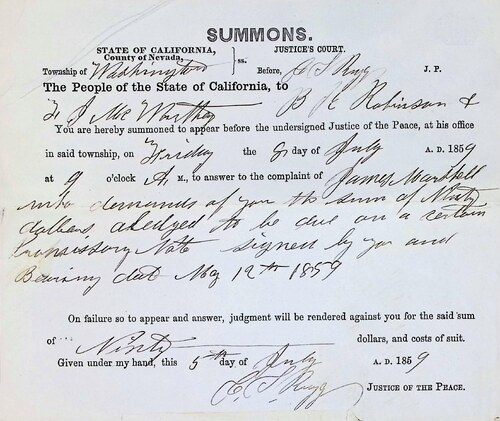 SUMMONS.
STATE OF CALIFORNIA, JUSTICE'S COURT.
County of Nevada, ss.
Township of Washington Before, C S Rugg J. P.
The People of the State of California, to B C Robinson &
W J McWorthey
You are hereby summoned to appear before the undersigned Justice of the Peace, at his office
in said township, on Friday the 8 day of July A. D. 1859
at 9 o'clock A M., to answer to the complaint of James Marshall
who demands of you the sum of Ninty
dollars, aledged to be due on a certain
Promissory Note signed by you and
Bearing dat May 12th 1859
On failure so to appear and answer, judgment will be rendered against you for the said sum
of Ninty dollars, and costs of suit.
Given under my hand, this 5th day of July A. D. 1859
C. S. Rugg JUSTICE OF THE PEACE.